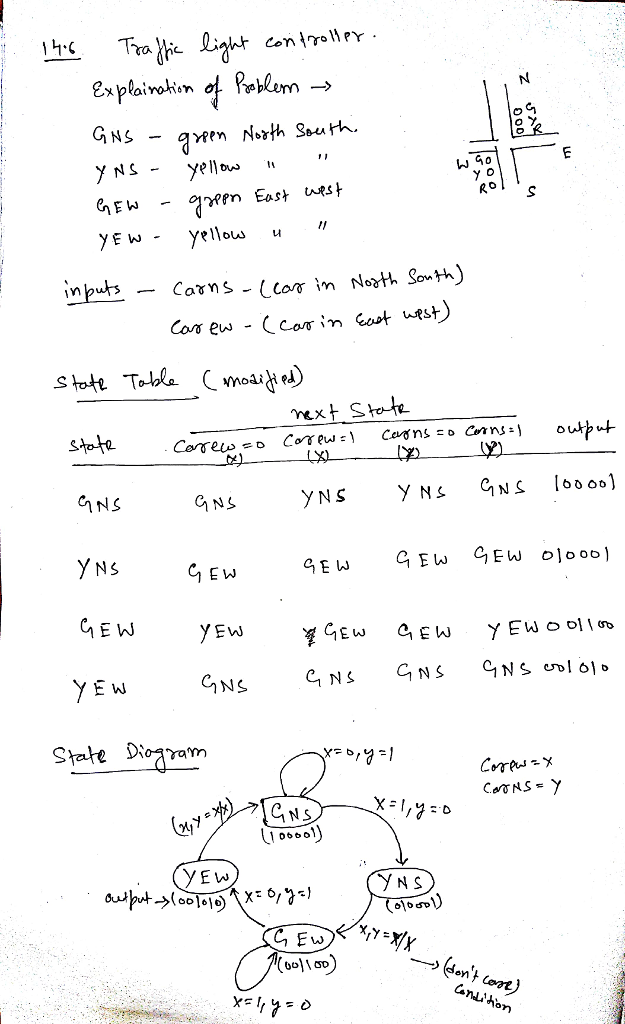 14.6 Traffic light controller.
Explaination of Problem →
GNS - green North South.
YNS - yellow " "
GEW - green East west
YEW - yellow " "
N
G
Y
R
E
W GO
YO
RO
S
inputs - Carns - (car in North South)
Car ew - (car in East west)
State Table (modified)
next State
State Carew=0 Carew=1 Carns=0 Carns=1 output
(X) (X) (Y) (Y)
GNS GNS YNS YNS GNS 100001
YNS GEW GEW GEW GEW 010001
GEW YEW GEW GEW YEW 001100
YEW GNS GNS GNS GNS 001010
State Diagram
X=0, y=1
Carew=X
CarNS=Y
(x,y=X/X) GNS X=1, y=0
(100001)
YEW YNS
output → (001010) X=0, y=1 (010001)
GEW X,Y=X/X
(001100) → (don't care)
Condition
X=1, y=0